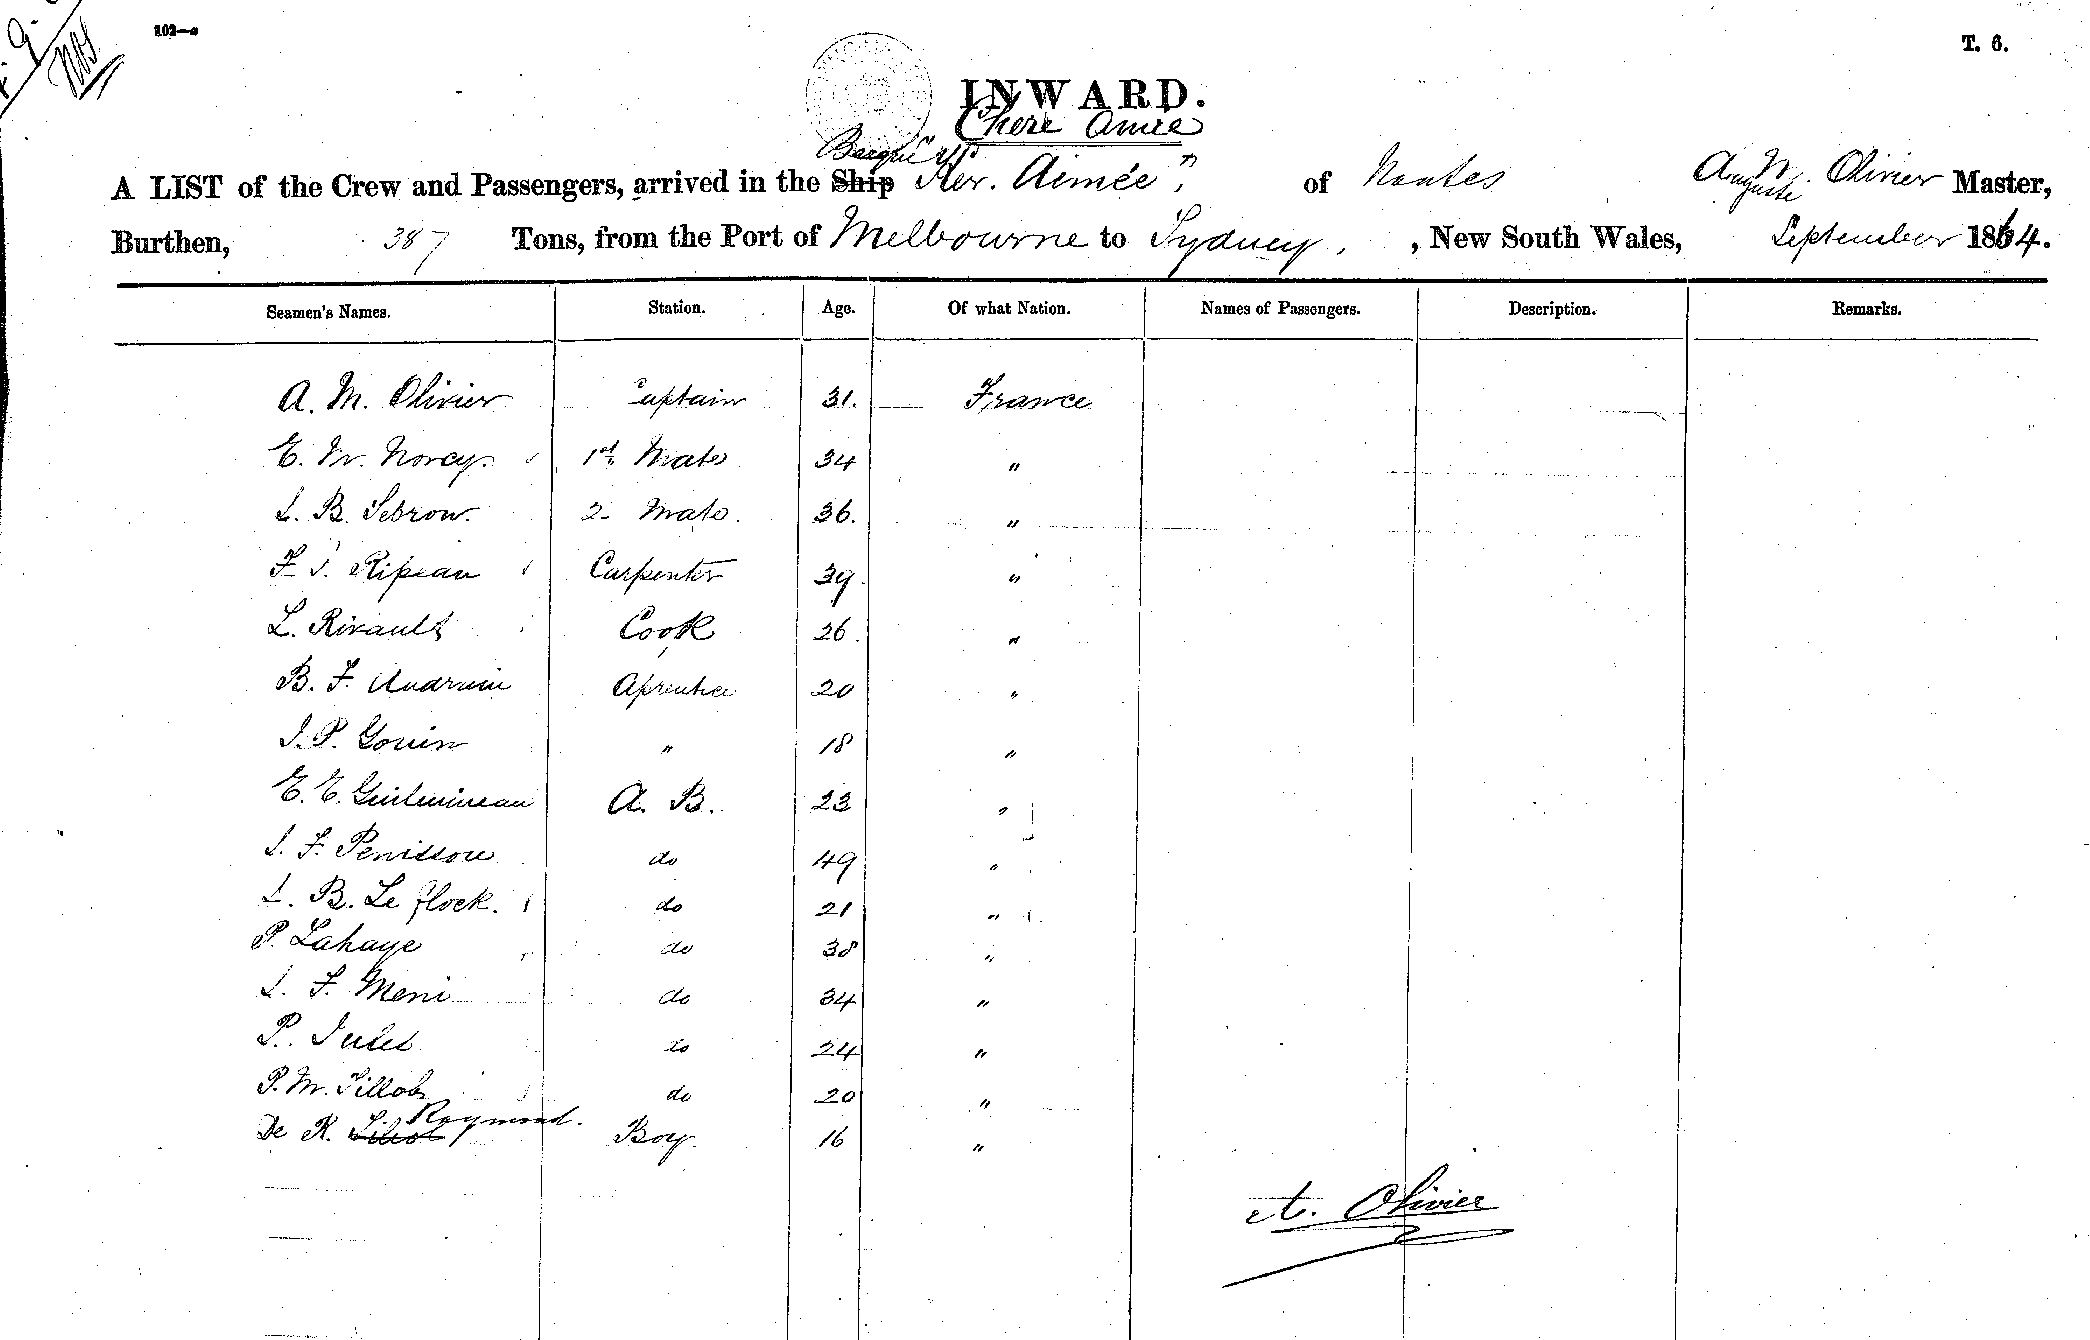 102—a
T. 6.
INWARD.
Chere Amie
Barque
A LIST of the Crew and Passengers, arrived in the Ship "Aimée", of Nantes Auguste M. Olivier Master,
Burthen, 387 Tons, from the Port of Melbourne to Sydney, , New South Wales, September 1864.
Seamen's Names. Station. Age. Of what Nation. Names of Passengers. Description. Remarks.
A. M. Olivier Captain 31. France
E. M. Norcy. 1st Mate 34 "
L. B. Sebrow. 2 Mate. 36. "
F. J. Ripeau Carpenter 39. "
L. Rivault Cook 26. "
B. F. Audrain Aprentice 20 "
J. P. Gouin " 18 "
E. E. Guilmineau A. B. 23 "
J. F. Penisson do 49 "
L. B. Le flock. do 21 "
P. Lahaye do 38 "
L. F. Meni do 34 "
P. Jules do 24 "
P. M. Tillob do 20 "
De R. Raymond. Boy. 16 "
A. Olivier